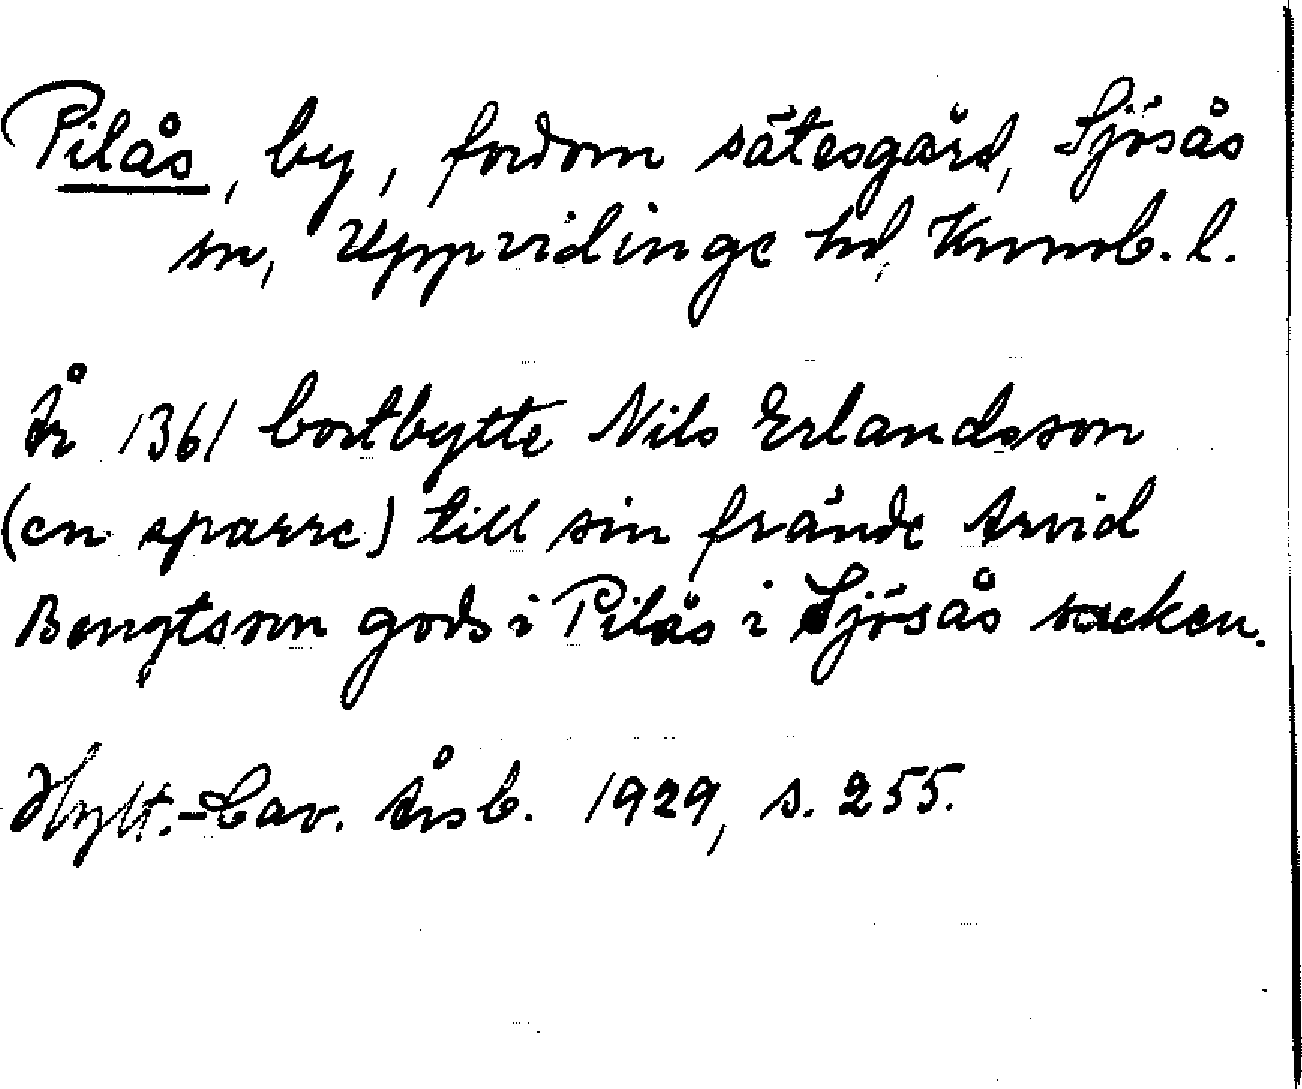 Pilås, by, fordom sätesgård, Sjösås
sn, Uppvidinge hd, Kronob. l.
År 1361 bortbytte Nils Erlandsson
(en sparre) till sin frände Arvid
Bengtsson gods i Pilås i Sjösås socken.
Hylt.-Cav. Årsb. 1929, s. 255.